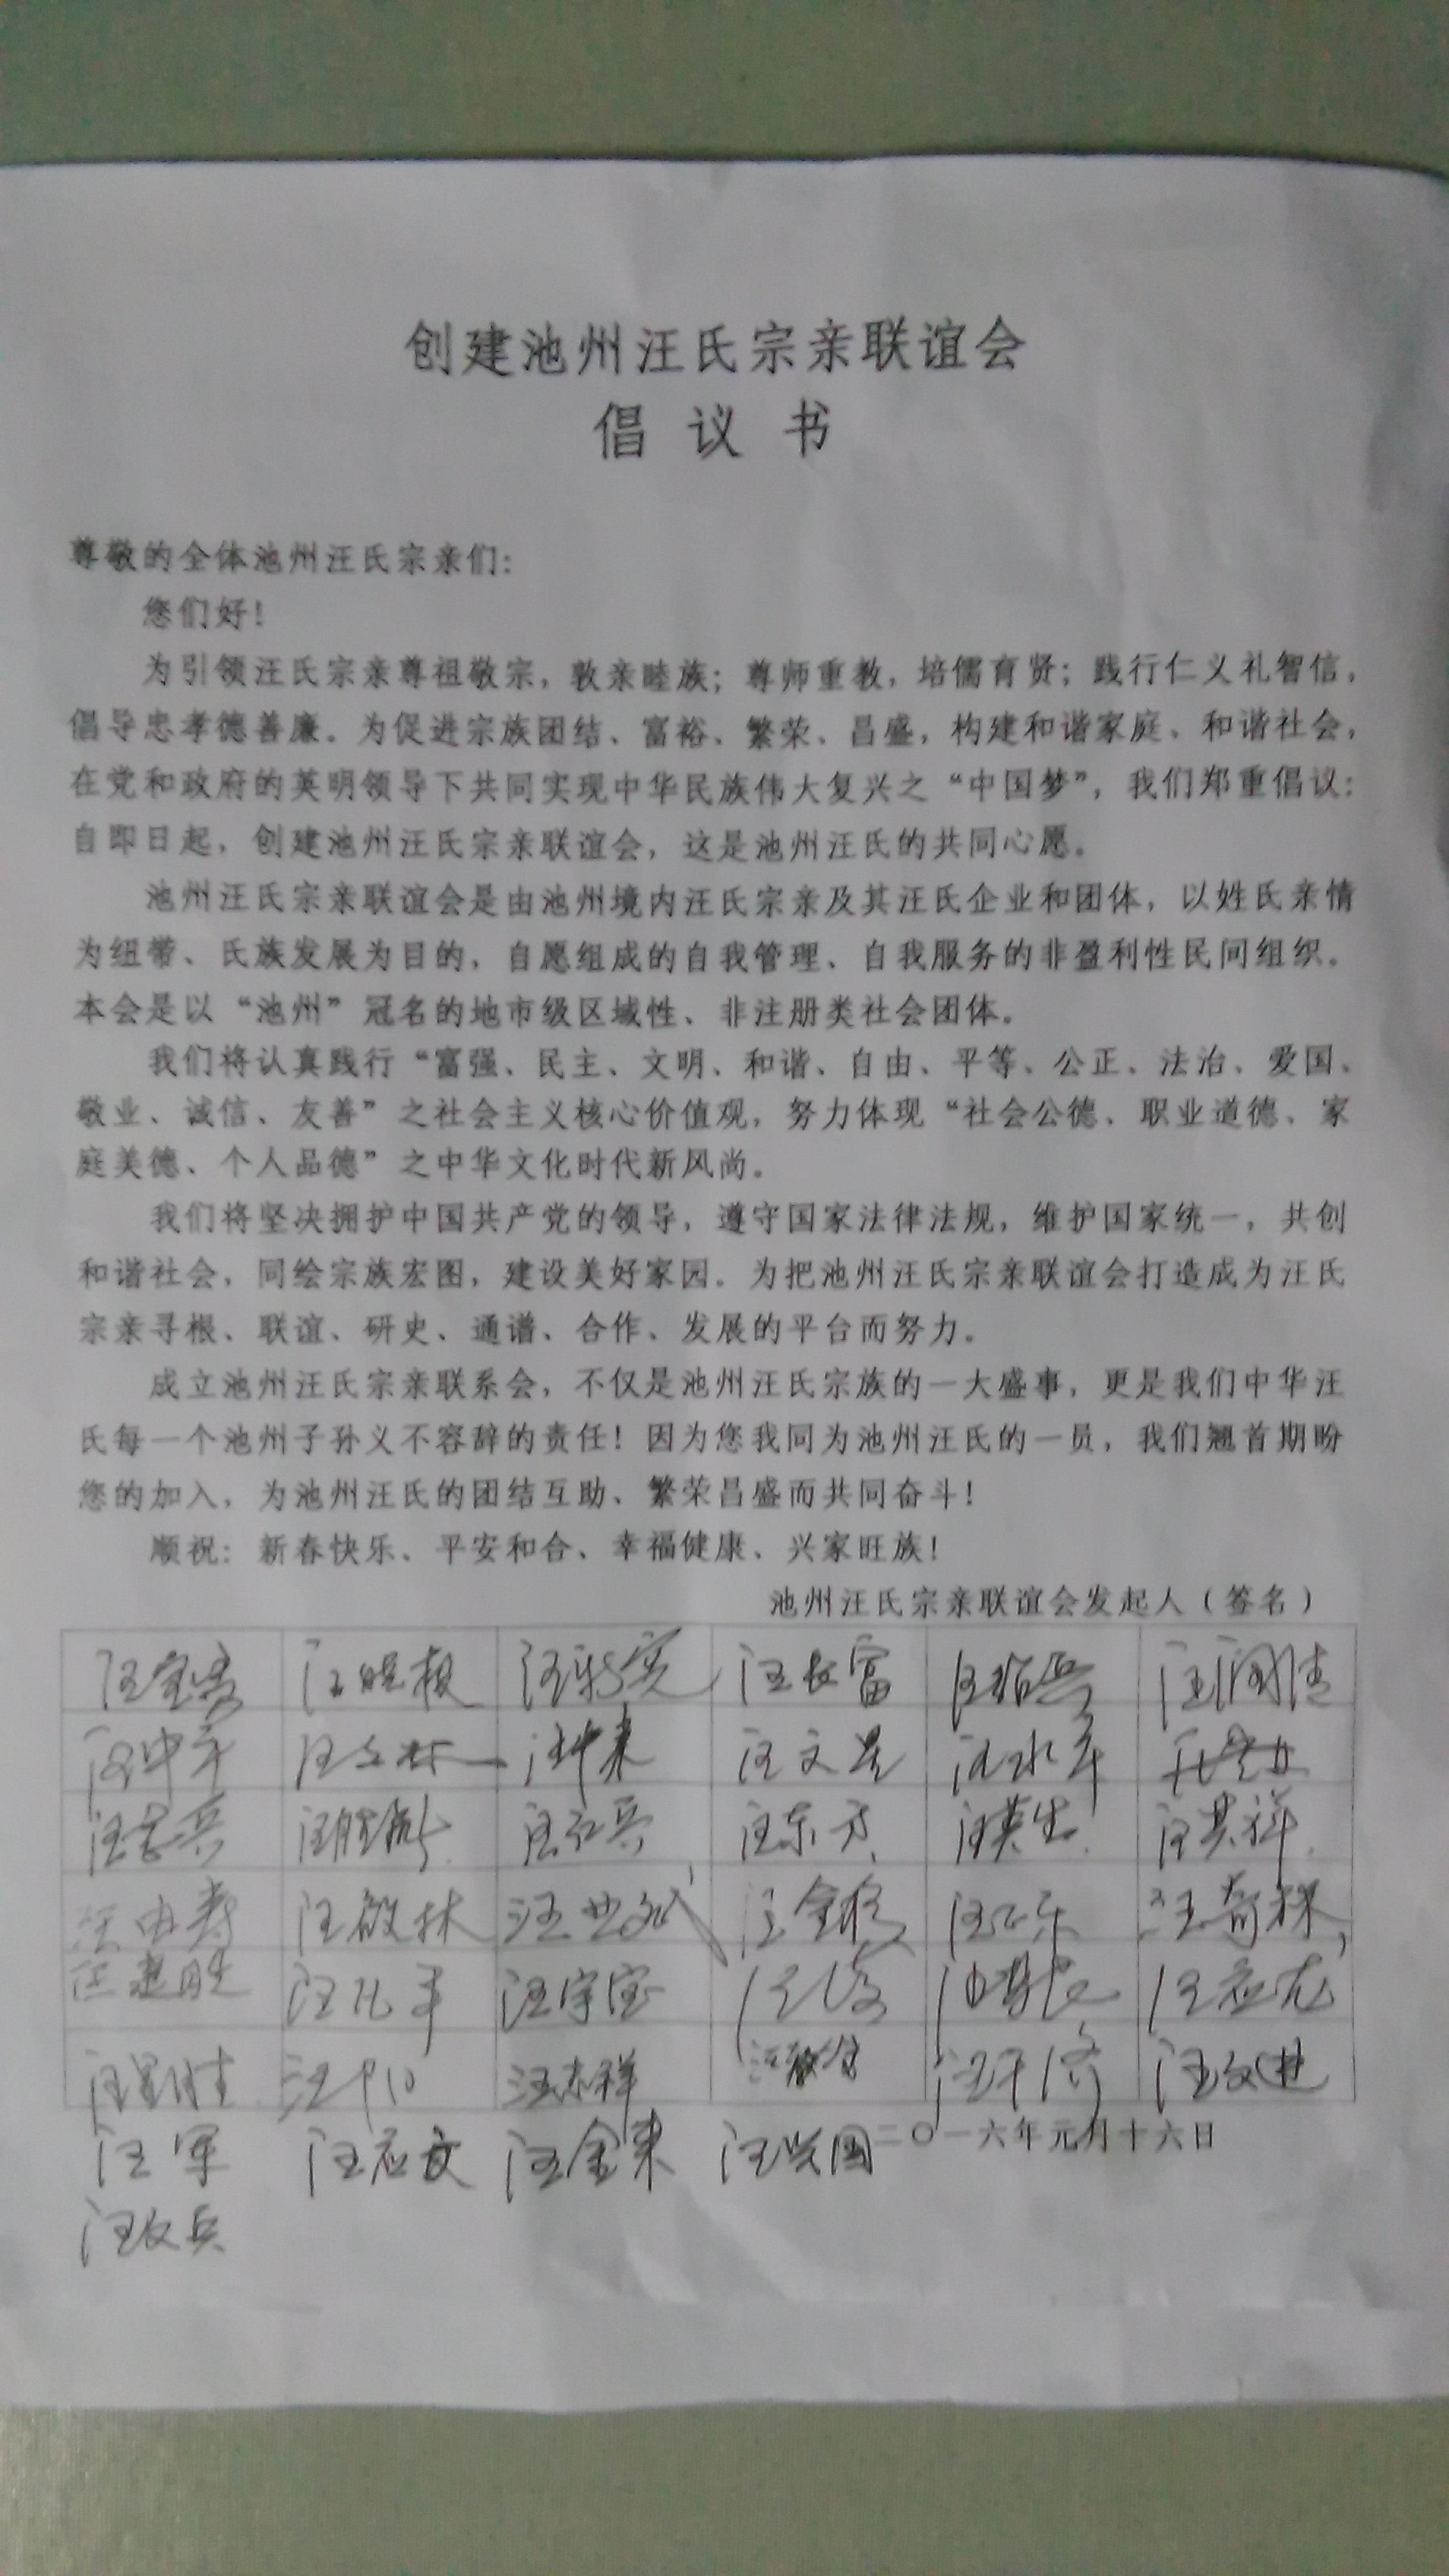 创建池州汪氏宗亲联谊会
倡 议 书
尊敬的全体池州汪氏宗亲们：
您们好！
为引领汪氏宗亲尊祖敬宗，敦亲睦族；尊师重教，培儒育贤；践行仁义礼智信，
倡导忠孝德善廉。为促进宗族团结、富裕、繁荣、昌盛，构建和谐家庭、和谐社会，
在党和政府的英明领导下共同实现中华民族伟大复兴之“中国梦”，我们郑重倡议：
自即日起，创建池州汪氏宗亲联谊会，这是池州汪氏的共同心愿。
池州汪氏宗亲联谊会是由池州境内汪氏宗亲及其汪氏企业和团体，以姓氏亲情
为纽带、氏族发展为目的，自愿组成的自我管理、自我服务的非盈利性民间组织。
本会是以“池州”冠名的地市级区域性、非注册类社会团体。
我们将认真践行“富强、民主、文明、和谐、自由、平等、公正、法治、爱国、
敬业、诚信、友善”之社会主义核心价值观，努力体现“社会公德、职业道德、家
庭美德、个人品德”之中华文化时代新风尚。
我们将坚决拥护中国共产党的领导，遵守国家法律法规，维护国家统一，共创
和谐社会，同绘宗族宏图，建设美好家园。为把池州汪氏宗亲联谊会打造成为汪氏
宗亲寻根、联谊、研史、通谱、合作、发展的平台而努力。
成立池州汪氏宗亲联系会，不仅是池州汪氏宗族的一大盛事，更是我们中华汪
氏每一个池州子孙义不容辞的责任！因为您我同为池州汪氏的一员，我们翘首期盼
您的加入，为池州汪氏的团结互助、繁荣昌盛而共同奋斗！
顺祝：新春快乐、平安和合、幸福健康、兴家旺族！
池州汪氏宗亲联谊会发起人（签名）
汪长富
汪东方 汪其祥
汪敬林
汪宇宝
汪志祥 汪文进
汪军 汪应文 汪金来 汪兴国 二〇一六年元月十六日
汪文兵